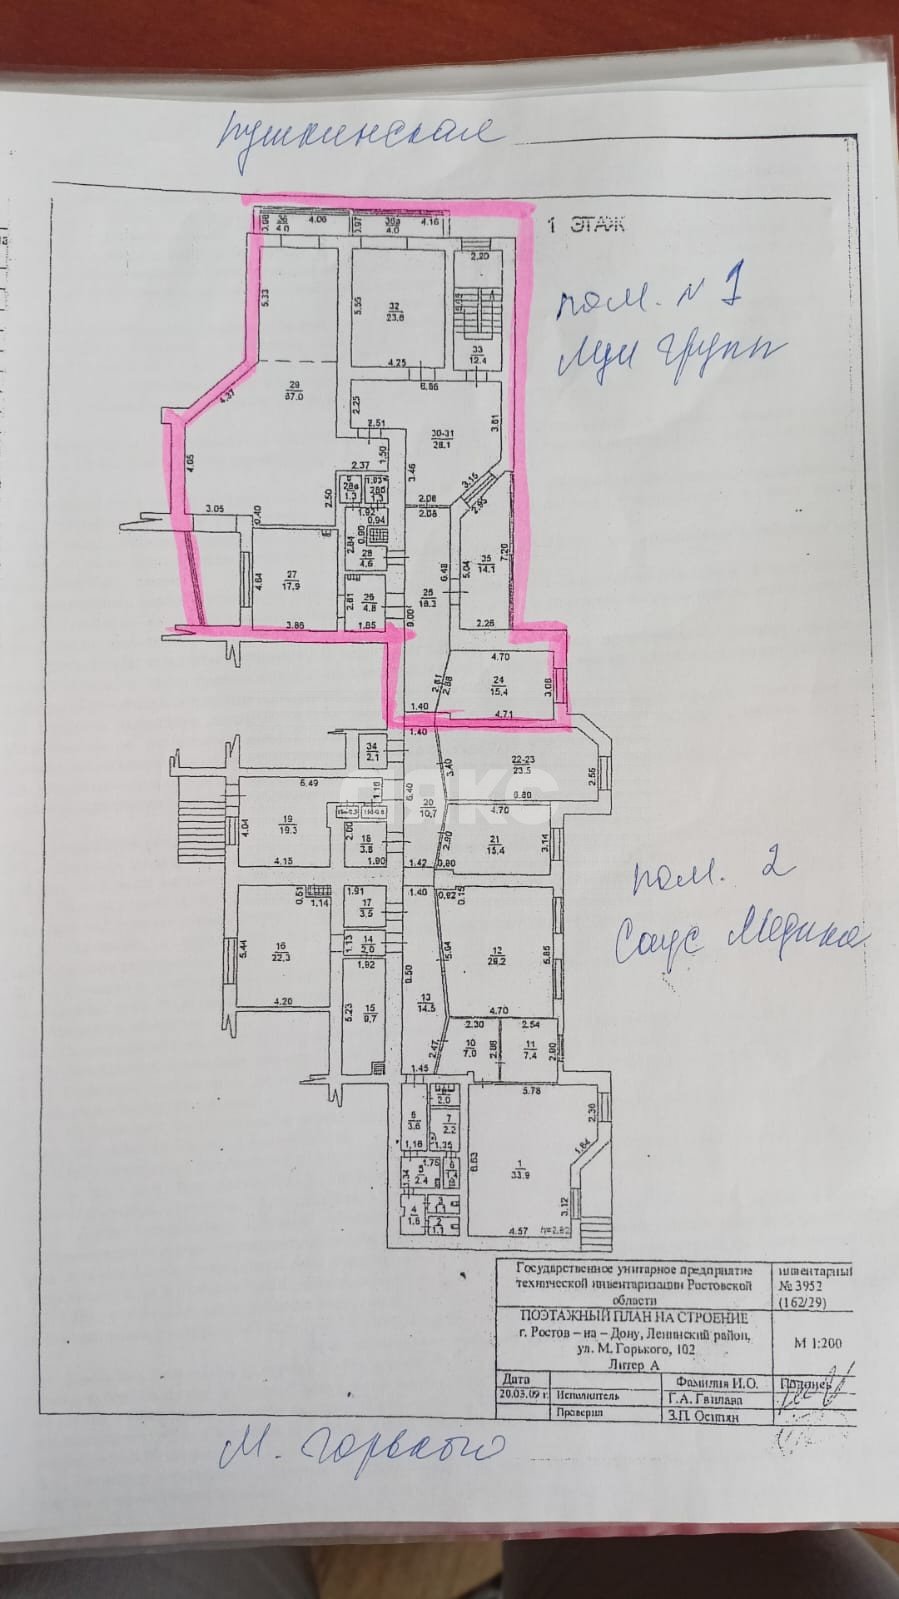 Пушкинская
1 ЭТАЖ
0.98
4.06
4.0
0.97
36а
4.16
4.0
2.20
5.33
5.55
32
23.6
4.25
33
12.4
6.86
пом. №1
Луи групп
4.37
29
67.0
2.25
2.51
30-31
28.1
3.61
4.05
2.37
1.50
3.46
3.15
2.93
2.50
28а
1.3
1.3
3.05
0.40
1.92
0.94
2.06
2.06
2.84
0.90
28
4.6
7.20
35
14.1
5.04
6.48
4.64
27
17.9
2.61
26
4.8
25
18.3
9.00
3.86
1.85
2.26
4.70
24
15.4
3.06
2.61
2.88
1.40
4.71
1.40
34
2.1
22-23
23.5
2.55
3.40
6.49
1.16
6.40
20
10.7
6.80
4.70
19
19.3
4.04
2.00
18
3.8
2.90
21
15.4
3.14
4.15
1.90
1.42
0.80
0.51
1.14
1.91
1.40
0.62
0.15
17
3.5
5.44
16
22.3
1.13
14
2.0
5.94
12
28.2
5.85
1.92
4.20
5.23
15
9.7
13
14.5
4.70
2.30
2.54
2.47
10
7.0
2.88
11
7.4
2.90
1.45
5.78
2.0
6
3.6
7
2.2
2.36
1.16
1.25
1.64
1.76
1.34
5
2.4
6.63
1
33.9
3
1.1
4
1.6
2
1.1
3.12
4.57
h=2.82
пом. 2
Соус Медиа
Государственное унитарное предприятие
технической инвентаризации Ростовской
области
инвентарный
№ 3952
(162/29)
ПОЭТАЖНЫЙ ПЛАН НА СТРОЕНИЕ
г. Ростов – на – Дону, Ленинский район,
ул. М. Горького, 102
Литер А
М 1:200
Дата
Фамилия И.О.
Подпись
20.03.09 г.
Исполнитель
Г.А. Гвилава
Проверил
З.П. Осипян
М. Горького